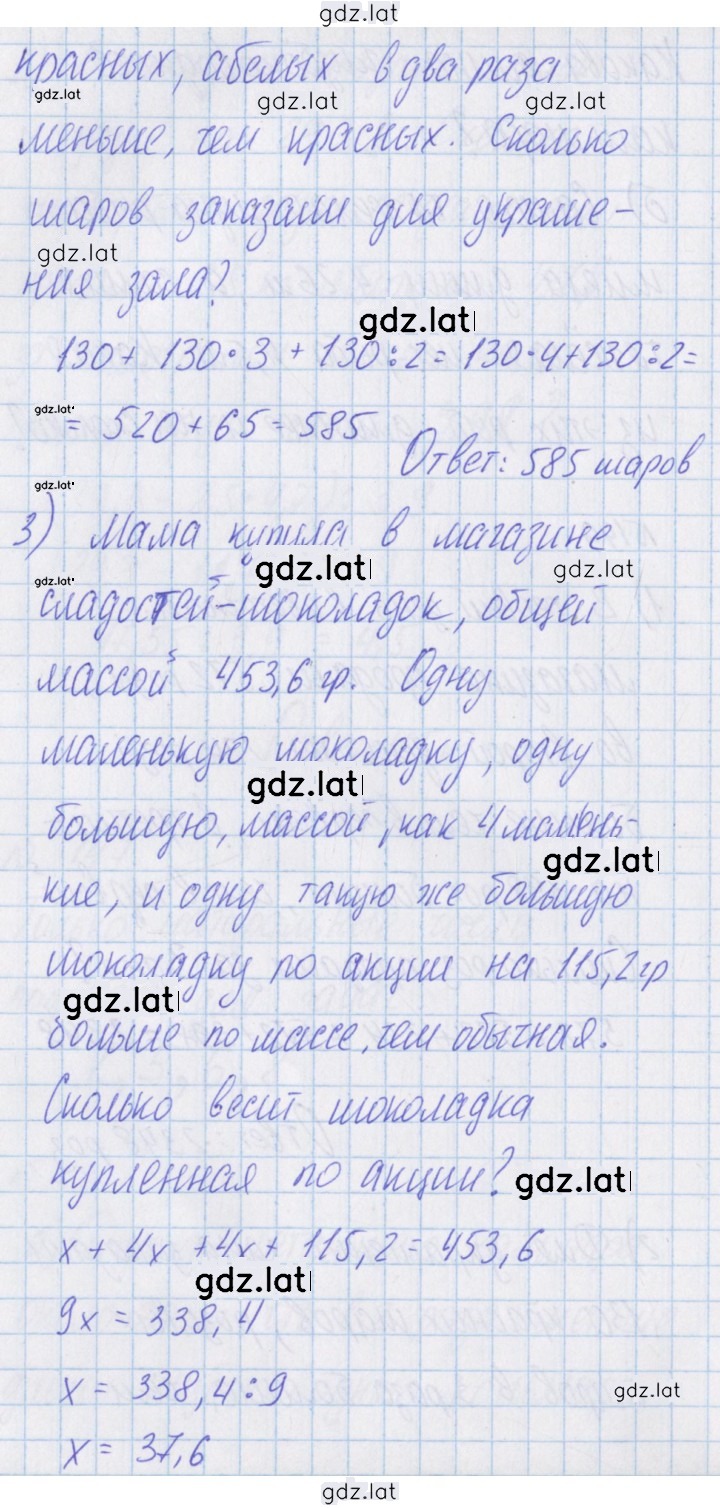 gdz.lat
красных, а белых в два раза
gdz.lat gdz.lat gdz.lat
меньше, чем красных. Сколько
шаров заказали для украше-
gdz.lat
ния зала?
gdz.lat
130 + 130·3 + 130:2 = 130·4+130:2=
gdz.lat
= 520 + 65 = 585
Ответ: 585 шаров
gdz.lat
3) Мама купила в магазине
gdz.lat gdz.lat gdz.lat
сладостей-шоколадок, общей
массой 453,6 гр. Одну
маленькую шоколадку, одну
gdz.lat
большую, массой, как 4 малень-
gdz.lat
кие, и одну такую же большую
шоколадку по акции на 115,2 гр
gdz.lat
больше по массе, чем обычная.
Сколько весит шоколадка
купленная по акции? gdz.lat
x + 4x + 4x + 115,2 = 453,6
gdz.lat
9x = 338,4
x = 338,4:9
gdz.lat
x = 37,6
gdz.lat